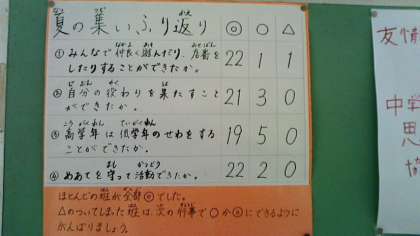 夏の集いふり返り ◎ ○ △
① みんなで仲良く遊んだり、応援を 22 1 1
したりすることができたか。
② 自分の役わりを果たすこと 21 3 0
ができたか。
③ 高学年は低学年のせわをする 19 5 0
ことができたか。
④ めあてを守って活動できたか。 22 2 0
ほとんどの班が全部◎でした。
△のついてしまった班は、次の行事で○か◎にできるように
がんばりましょう。
友情
中学
思